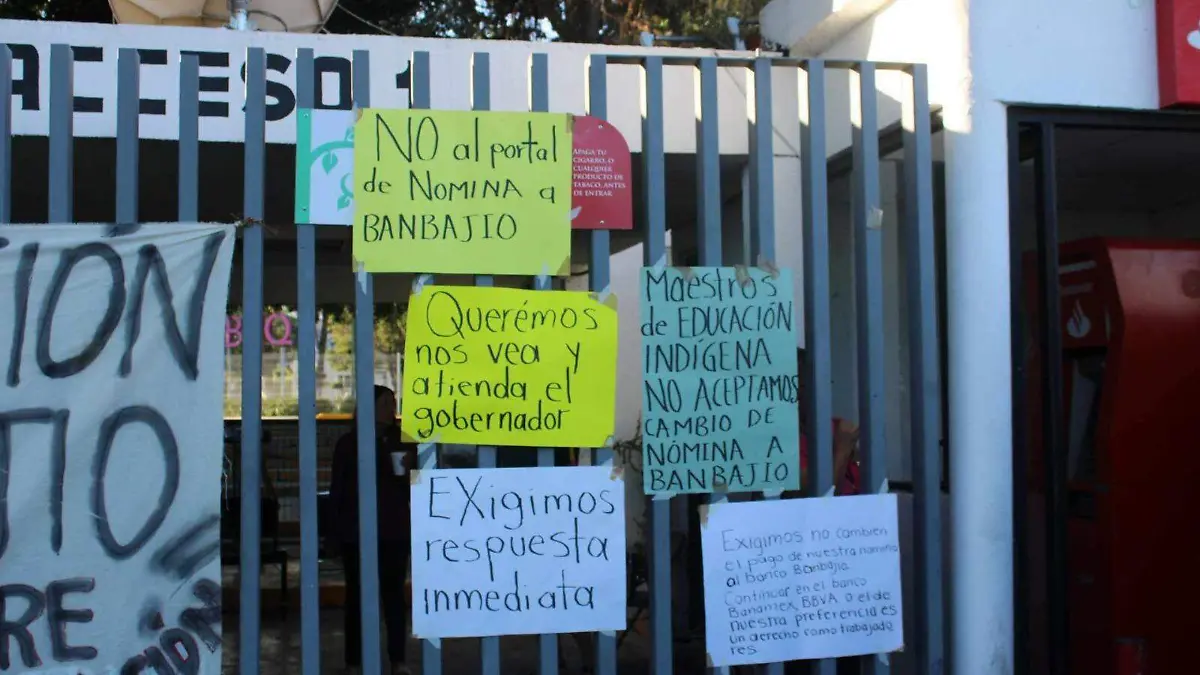 ACCESO 1
NO al portal
de NOMINA a
BANBAJIO
APAGA TU
CIGARRO, O
CUALQUIER
PRODUCTO DE
TABACO, ANTES
DE ENTRAR.
Querémos
nos vea y
atienda el
gobernador
Maestros
de EDUCACIÓN
INDÍGENA
NO ACEPTAMOS
CAMBIO DE
NÓMINA A
BANBAJIO
EXigimos
respuesta
inmediata
Exigimos no cambien
el pago de nuestra nomina
al banco Banbajio.
Continuar en el banco
Banamex, BBVA o el de
nuestra preferencia es
un derecho como trabajado
res